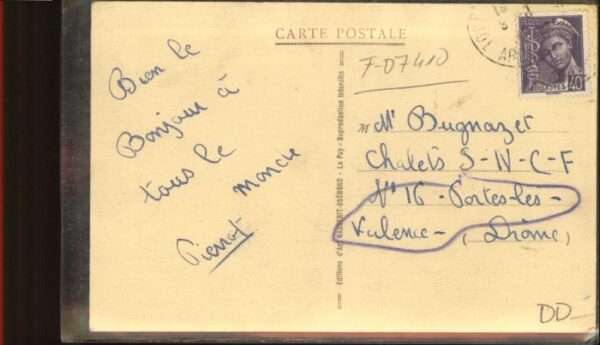 CARTE POSTALE
F-07410
Bien le
Bonjour à
tous le
monde
Pierrot
M Mr Bugnazet
Chalets S-N-C-F
N° 16 - Portes-les-
Valence - (Drôme)
Editions d'Art
Le Puy - Reproduction interdite
40
DD